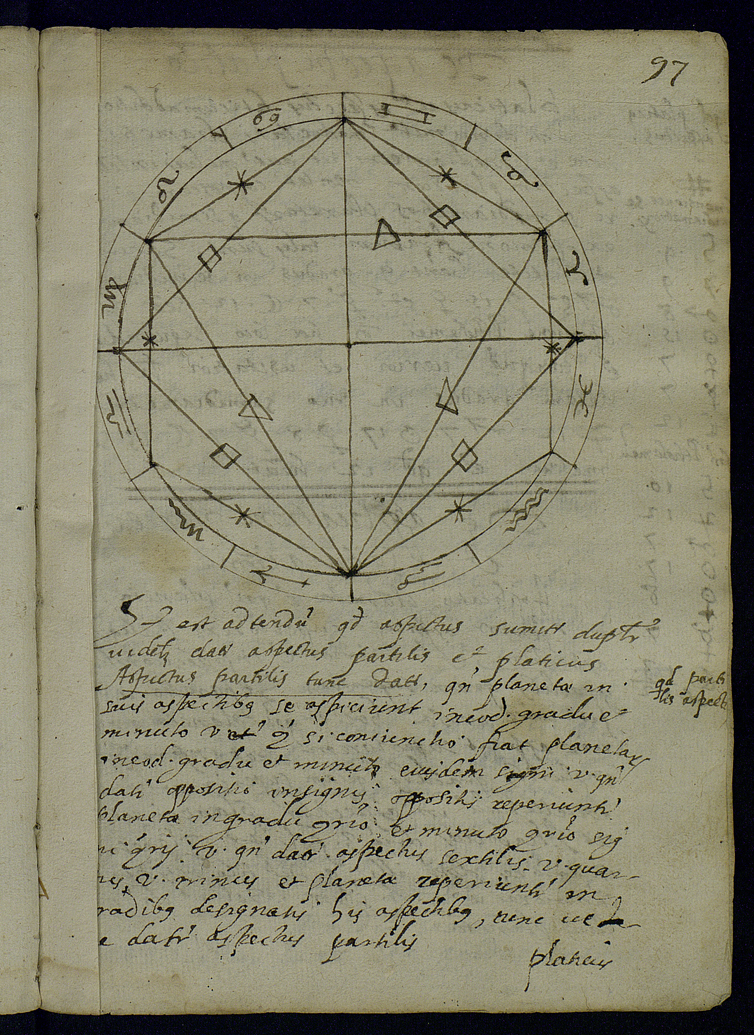 97
♋ ♊
♌ ♉
♍ ♈
♎ ♓
♏ ♒
♐ ♑
est adtendū qd aspectus sumitr duplr
videlz datr aspectus partilis et platicus
Aspectus partilis tunc datr, qn planetæ in
suis aspectibq se aspiciunt in eod. gradu et
minuto v si coniunctio fiat planetar
in eod. gradu et minuto eiusdem signi v. qn
datr oppositio in signis oppositis reperiuntr
planetæ in gradu et minuto sig
ni v. qn datr aspectus sextilis v. quar-
v. trinus et planetæ reperiuntr in
radibq designatis his aspectibq, tunc
e datr aspectus partilis
platicus
qd parti
lis aspect